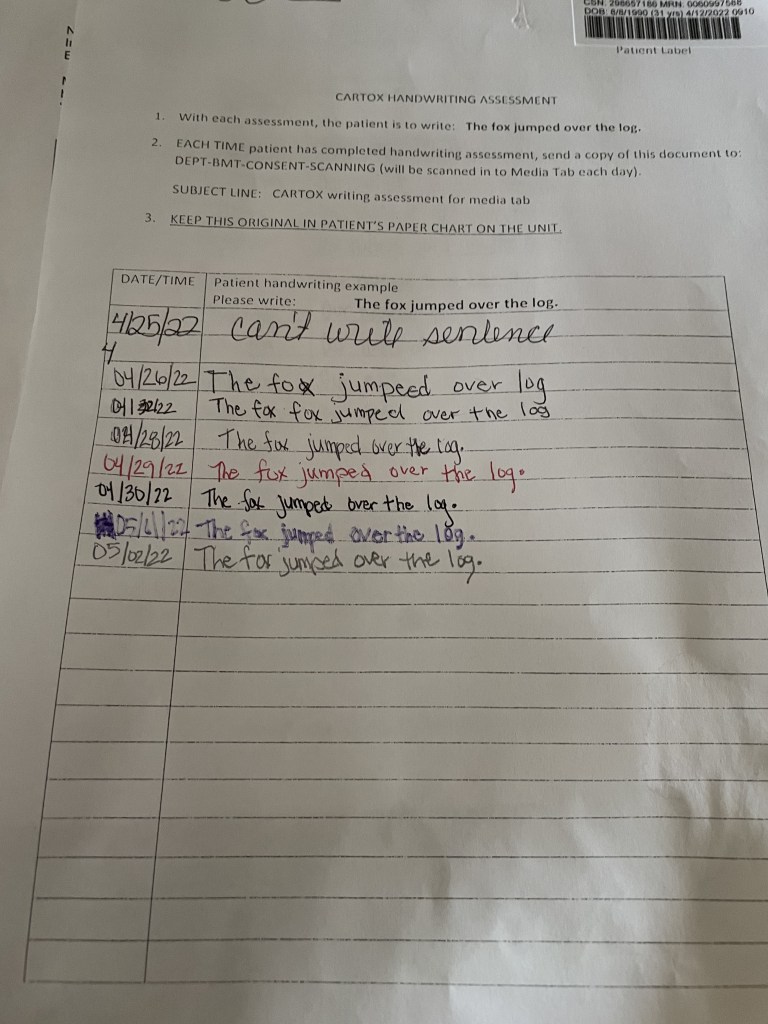 CSN: 298657186 MRN: 0060997586
DOB: 8/8/1990 (31 yrs) 4/12/2022 0910
Patient Label
CARTOX HANDWRITING ASSESSMENT
1. With each assessment, the patient is to write: The fox jumped over the log.
2. EACH TIME patient has completed handwriting assessment, send a copy of this document to:
DEPT-BMT-CONSENT-SCANNING (will be scanned in to Media Tab each day).
SUBJECT LINE: CARTOX writing assessment for media tab
3. KEEP THIS ORIGINAL IN PATIENT'S PAPER CHART ON THE UNIT.
DATE/TIME Patient handwriting example
Please write: The fox jumped over the log.
4/25/22 can't write sentence
4
04/26/22 The fox jumpeed over log
The fox fox jumped over the log
04/28/22 The fox jumped over the log.
04/29/22 The fox jumped over the log.
04/30/22 The fox jumped over the log.
The fox jumped over the log.
05/02/22 The fox jumped over the log.